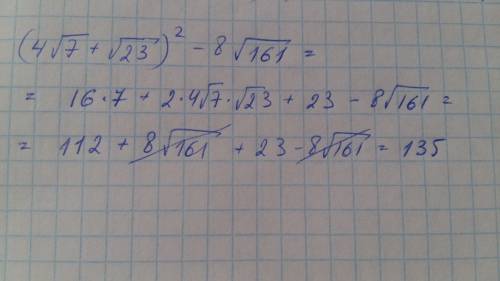 (4√7 + √23)² - 8√161 =
= 16·7 + 2·4√7·√23 + 23 - 8√161 =
= 112 + 8√161 + 23 - 8√161 = 135